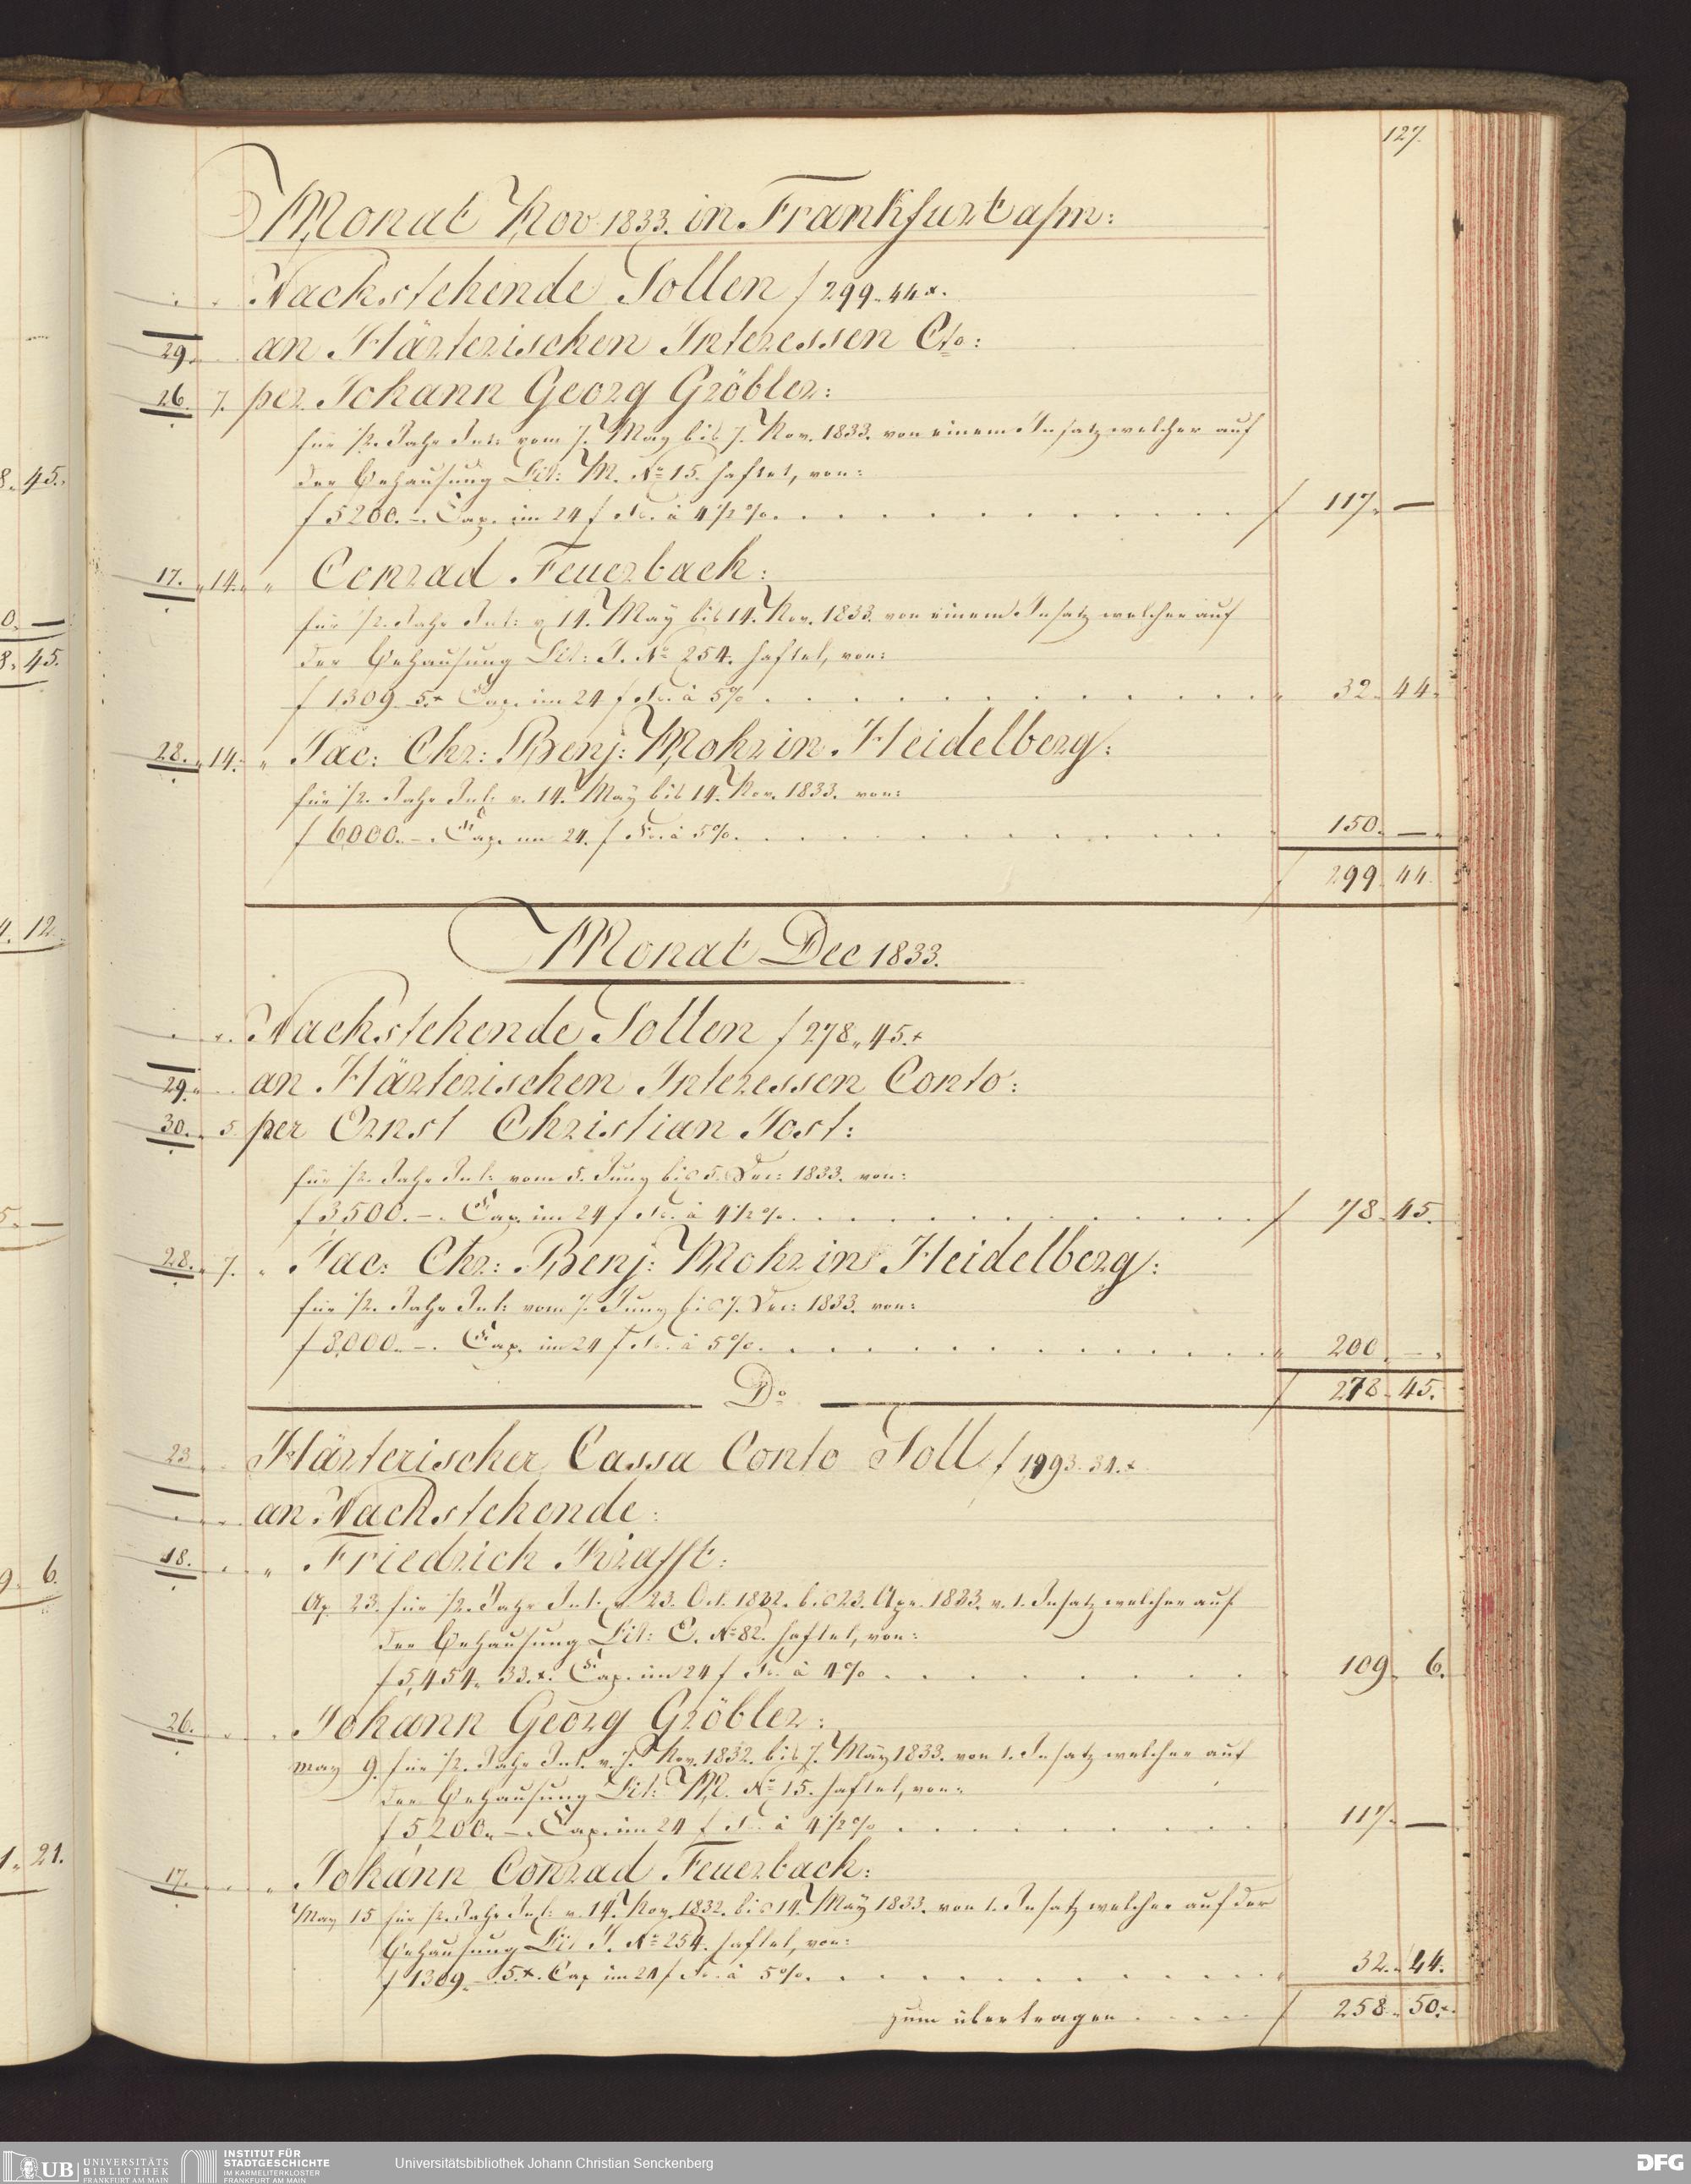 127.
Monat Nov 1833. in Frankfurt a/m:
Nachstehende Sollen f 299. 44 x.
29. an Härterischen Interessen Cto:
26. 7. per Johann Georg Gröbler:
für 1/2. Jahr Int: vom 7. May bis 7. Nov. 1833. von einem Insatz welcher auf
der Behausung Lit: M. No 15. haftet, von:
f 5200. –. Cap. im 24 f Fs. à 4 1/2 %. f 117. —
17. " 14. " Conrad Feuerbach:
für 1/2. Jahr Int: v. 14. May bis 14. Nov. 1833. von einem Insatz welcher auf
der Behausung Lit: J. No 254. haftet, von:
f 1309. 5. x Cap. im 24 f Fs. à 5% " 32. 44.
28. " 14. " Jac: Chr: Benj: Mohr in Heidelberg:
für 1/2. Jahr Int: v. 14. May bis 14. Nov. 1833. von:
f 6000. –. Cap. im 24. f Fs. à 5%. 150. —.
f 299. 44.
Monat Dec 1833.
Nachstehende Sollen f 278. 45. x
29. an Härterischen Interessen Conto:
30. " 5. per Ernst Christian Jost:
für 1/2. Jahr Int: vom 5. Juny bis 5. Dec: 1833. von:
f 3500. –. Cap. im 24 f Fs. à 4 1/2 %. f 78. 45.
28. " 7. " Jac: Chr: Benj: Mohr in Heidelberg:
für 1/2. Jahr Int: vom 7. Juny bis 7. Dec: 1833. von:
f 8,000. –. Cap. im 24 f Fs. à 5%. " 200. —.
f 278. 45.
Do
23. Härterischer Cassa Conto Soll f 1993. 34. x
an Nachstehende:
18. " Friedrich Krafft:
Ap. 23. für 1/2. Jahr Int: v. 23. Oct. 1832. bis 23. Apr. 1833. v. 1. Insatz welcher auf
der Behausung Lit: C. No 82. haftet, von:
f 5,454. 33. x. Cap. im 24 f Fs. à 4% 109. 6.
26. " Johann Georg Gröbler:
May 9. für 1/2. Jahr Int. v. 7. Nov. 1832. bis 7. May 1833. von 1. Insatz welcher auf
der Behausung Lit: M. No 15. haftet, von:
f 5,200. –. Cap. im 24 f Fs. à 4 1/2 % 117. —
17. " Johann Conrad Feuerbach:
May 15 für 1/2. Jahr Int: v. 14. Nov. 1832. bis 14. May 1833. von 1. Insatz welcher auf der
Behausung Lit J. No 254. haftet, von:
f 1309. –. 5. x. Cap im 24 f Fs. à 5%. 32. 44.
zum übertragen f 258. 50. x.
8. 45.
0. —
8. 45.
4. 12.
5. —
9. 6.
1. 21.
UB UNIVERSITÄTS
BIBLIOTHEK
FRANKFURT AM MAIN
INSTITUT FÜR
STADTGESCHICHTE
IM KARMELITERKLOSTER
FRANKFURT AM MAIN
Universitätsbibliothek Johann Christian Senckenberg
DFG